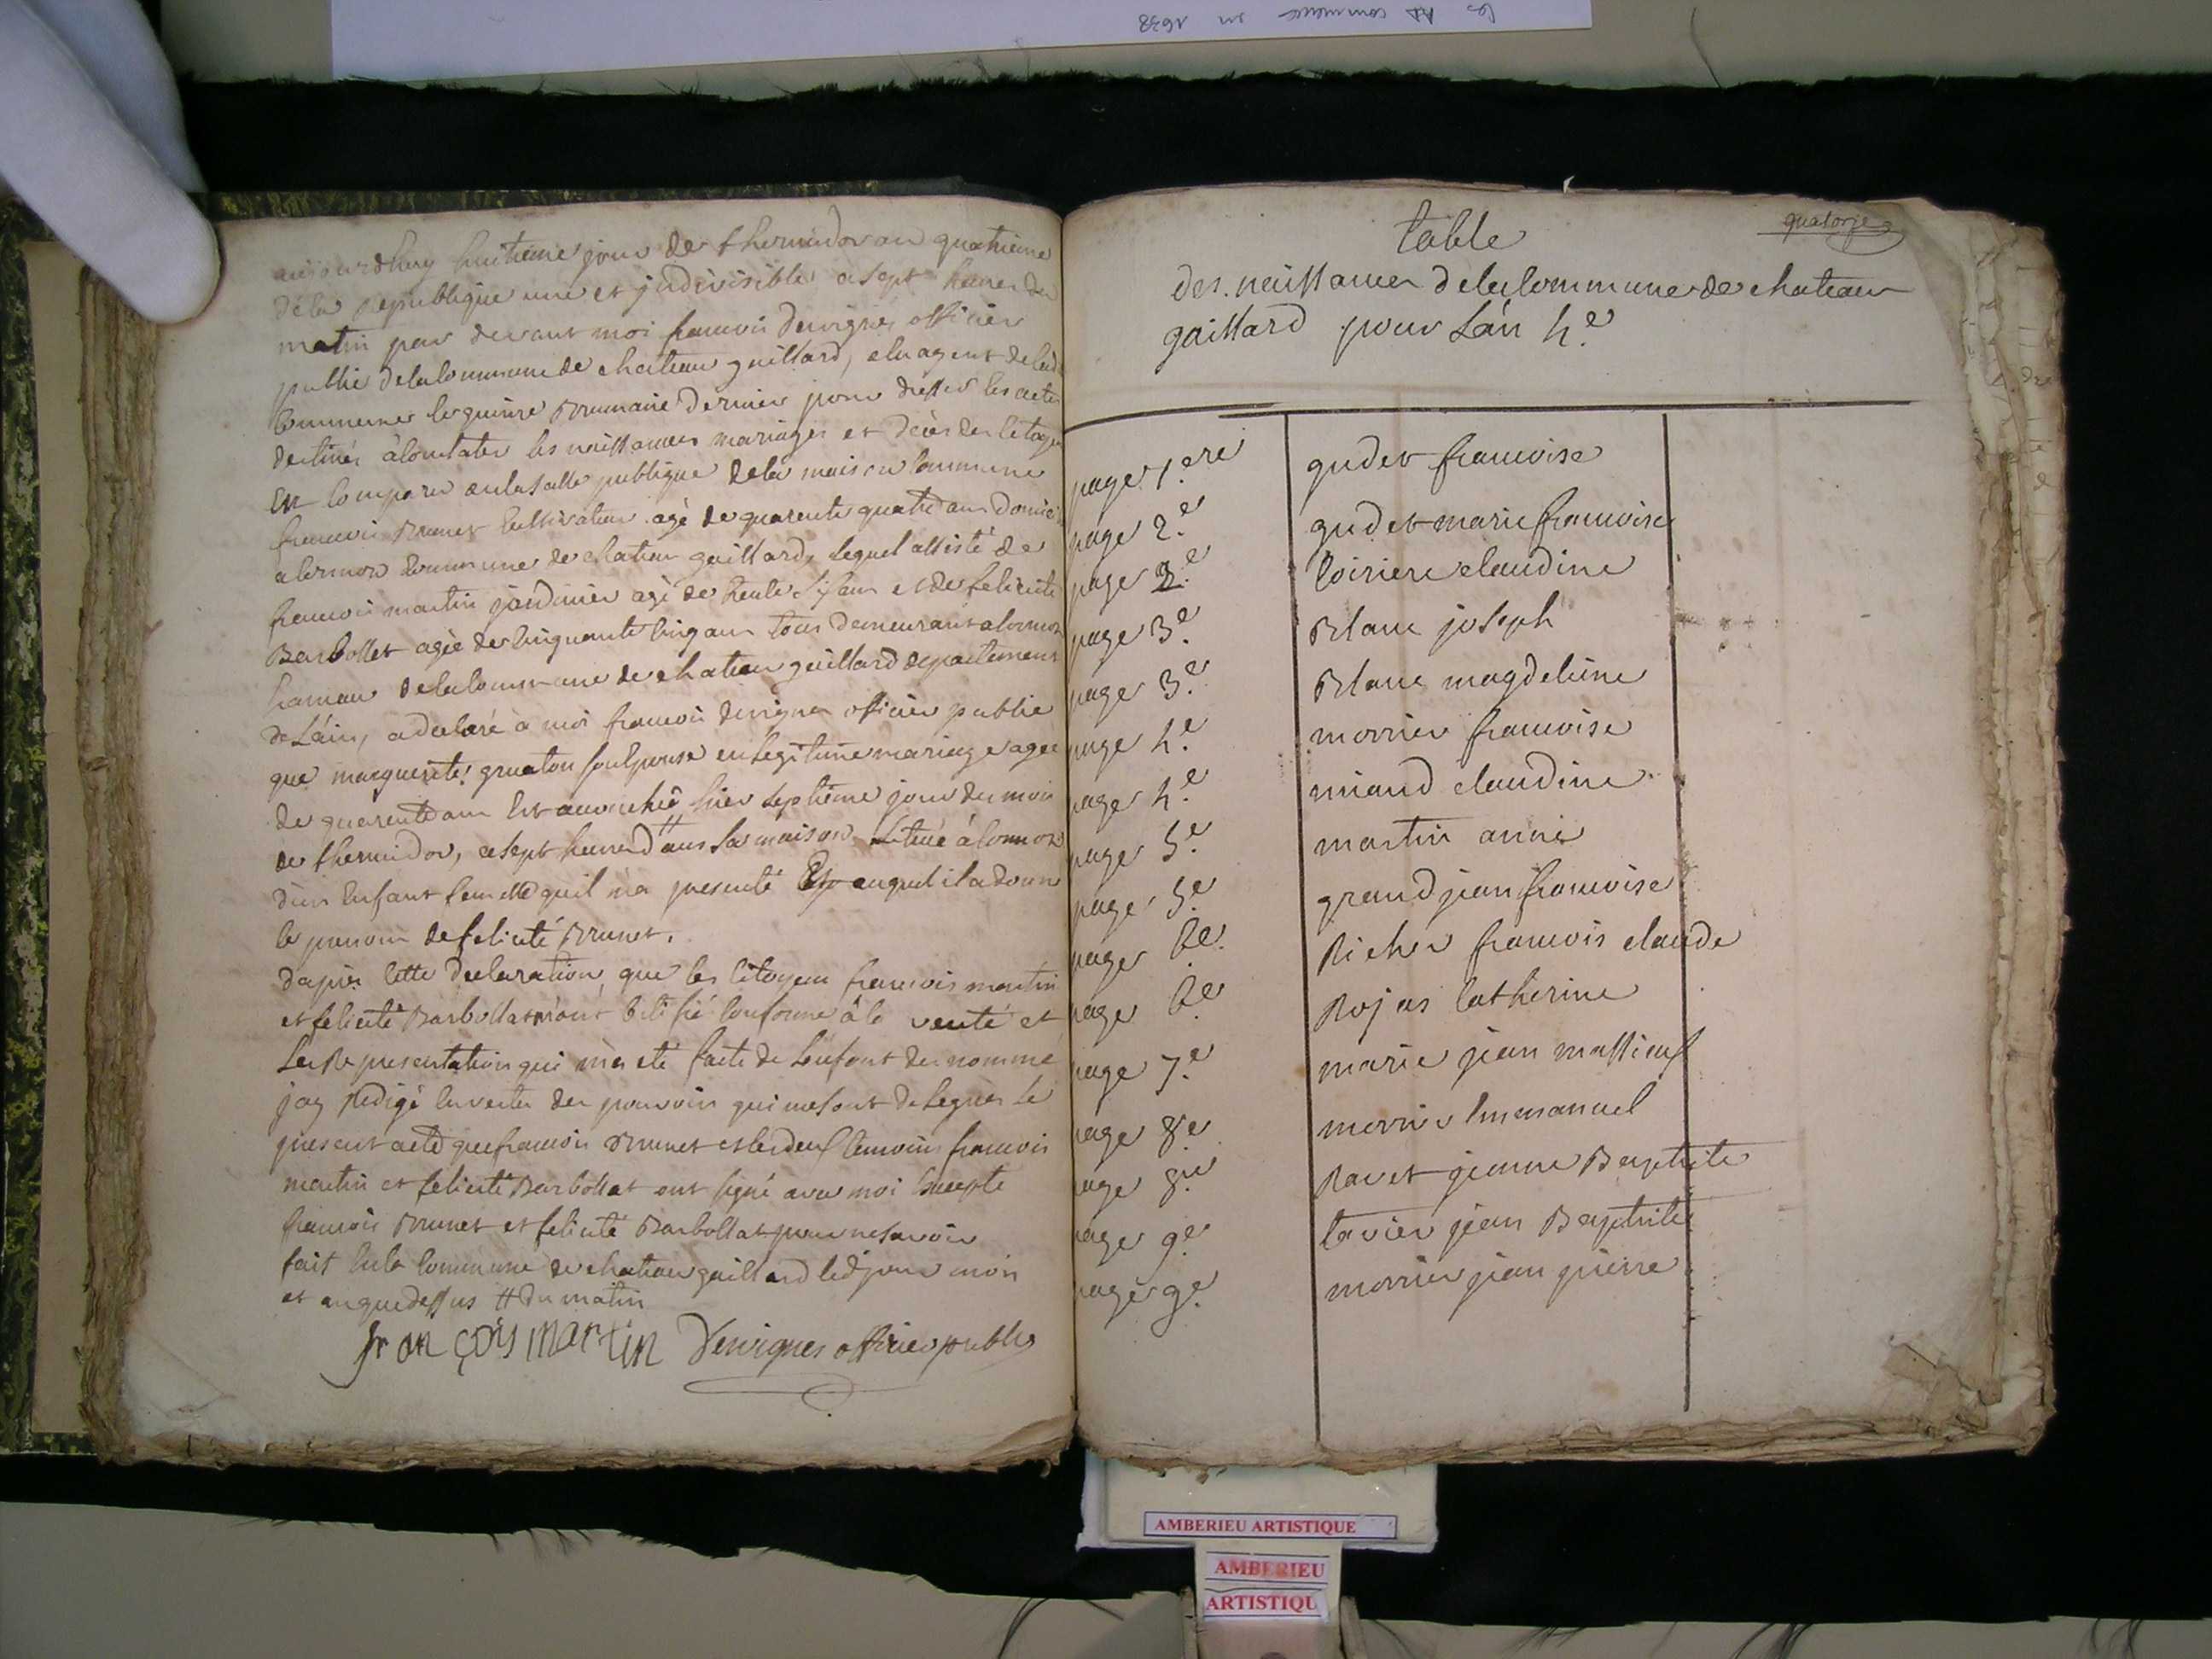 les commence en 1638
aujourdhuy huitieme jour de thermidor an quatrieme
de la Republique une et jndivisible a sept heures du
matin par devant moi francois dervignes officier
public de la commune de chateau gaillard, elu agent de lad
Commune le quinze Brumaire dernier pour dresser les actes
destinés a constater les naissances mariages et décès des citoyen
Est comparu en la salle publique de la maison commune
francois Brunet cultivateur agé de quarente quatre ans domici
a cormoz commune de chateau gaillard, lequel assisté de
francois martin jardinier agé de trente six ans et de felicité
Barbollat agée de cinquante cinq ans tous demeurant a cormoz
hameau de la commune de chateau gaillard departement
de L'ain, a déclaré à moi francois dervignes officier public
que marguerite gruaton son Epouse en Legitime mariage agée
de quarente ans Est accouchée hier septieme jour du mois
de thermidor, a sept heures # dans sa maison Située à cormoz
d'un Enfant femelle quil m'a presenté Et auquel il a donné
le prenom de felicité Brunet.
dapres cette declaration, que les citoyens francois martin
et felicité Barbollat m'ont Certifié conforme à la verité et
La Representation qui m'a eté faite de L'enfant denommé
jay Redigé en vertu des pouvoirs qui me sont delegués Le
present acte que francois Brunet et les deux temoins francois
martin et felicité Barbollat ont signé avec moi Excepté
francois Brunet et felicité Barbollat pour ne savoir
fait En la commune de chateau gaillard led jour mois
et an que dessus # du matin
françois martin Dervignes officier public
quatorze
table
des naissances de la Commune de chateau
gaillard pour L'an 4.e
page 1.ere gudet francoise
page 2.e gudet marie francoise
page 2.e Loiriere claudine
page 3.e Blanc joseph
page 3.e Blanc magdeleine
page 4.e morrier francoise
page 4.e miand claudine
page 5.e martin anne
page 5.e grandjean francoise
page 6.e Richer francois claude
page 6.e Rojas Catherine
page 7.e marie jean massieux
page 8.e morrier Emmanuel
page 8.e Ravet jeanne Baptiste
page 9.e tavier jean Baptiste
page 9.e morrier jean pierre
AMBERIEU ARTISTIQUE
AMBERIEU
ARTISTIQU